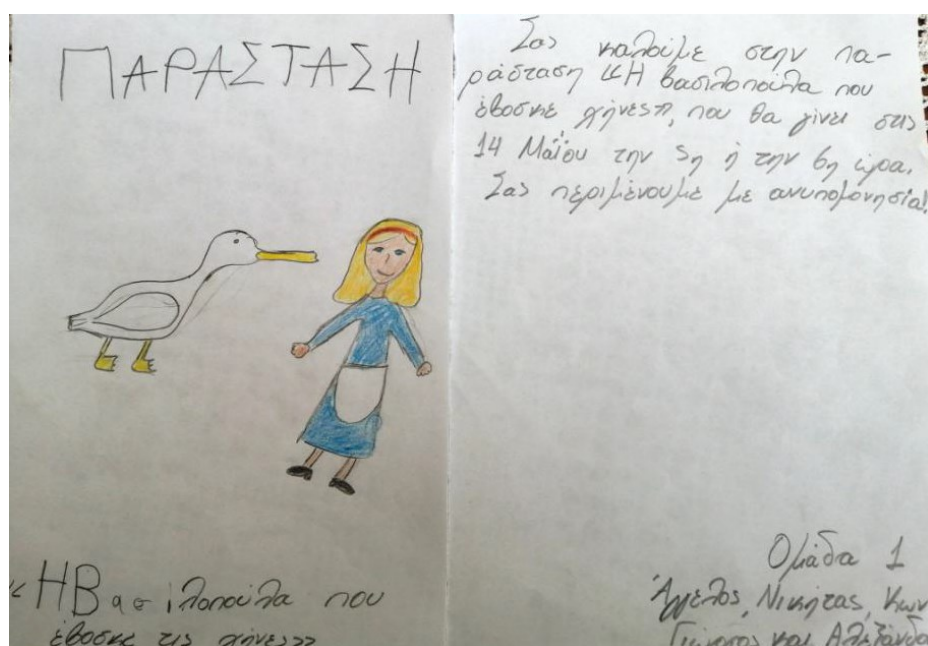 ΠΑΡΑΣΤΑΣΗ
«Η Βασιλοπούλα που
έβοσκε τις χήνες»
Σας καλούμε στην πα-
ράσταση «Η βασιλοπούλα που
έβοσκε χήνες», που θα γίνει στις
14 Μαΐου την 5η ή την 6η ώρα.
Σας περιμένουμε με ανυπομονησία!
Ομάδα 1
Άγγελος, Νικήτας, Κων
Γιώργος και Αλεξάνδρα